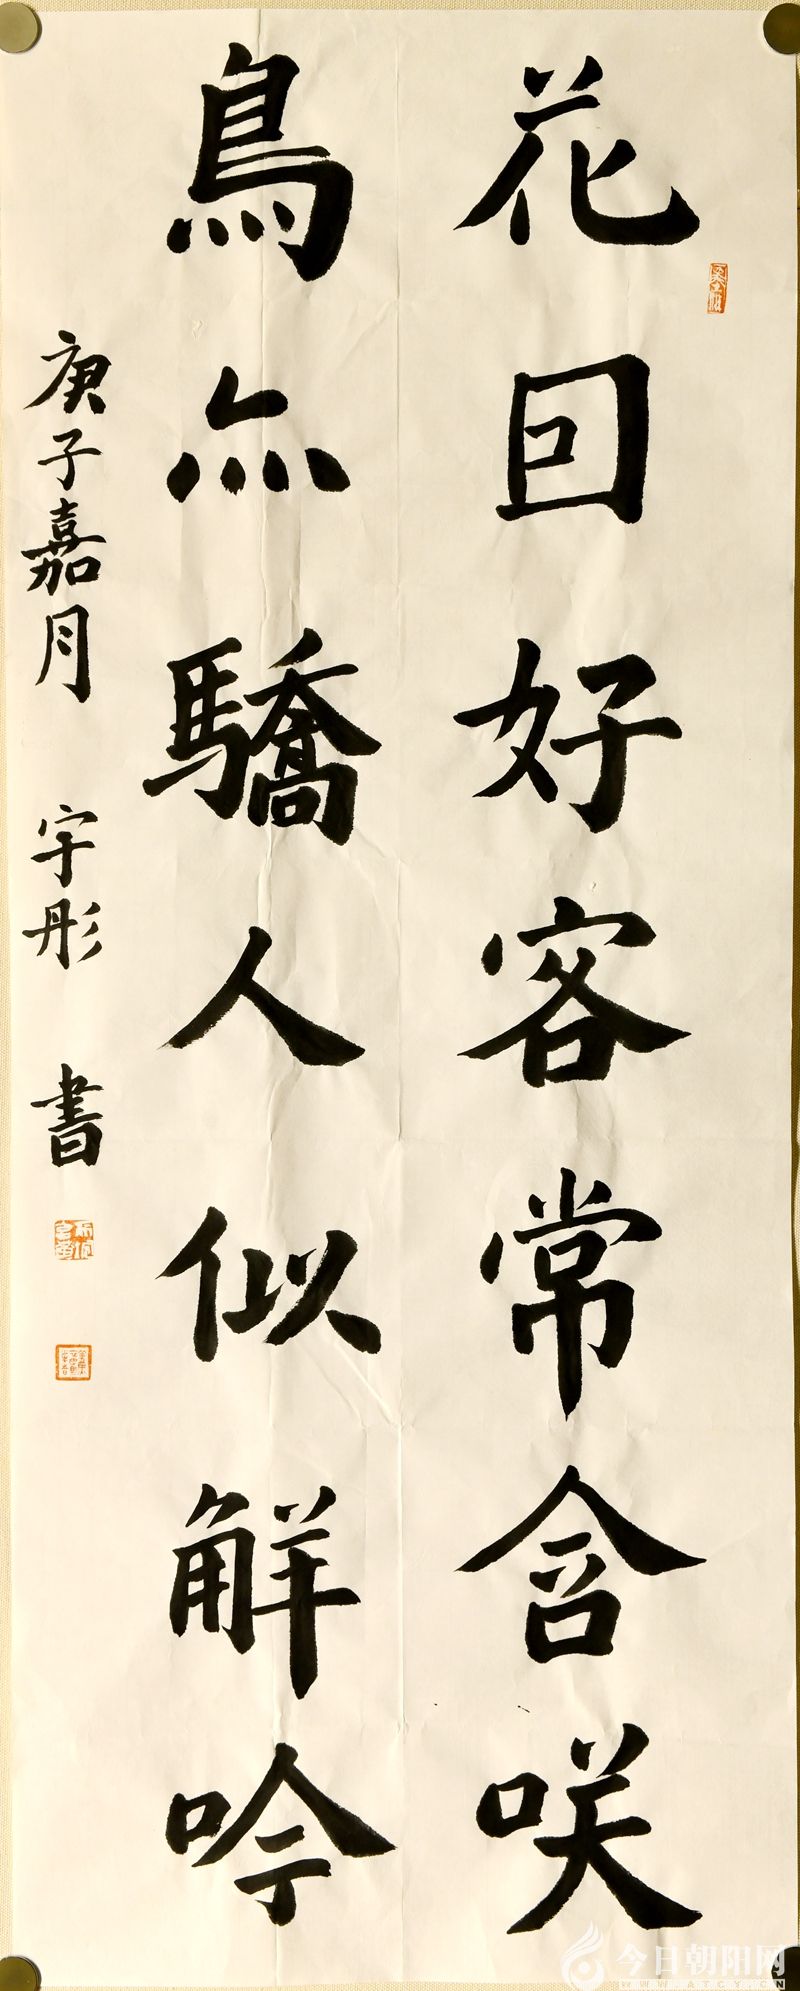 花回好客常含咲
鳥亦驕人似觧吟
庚子嘉月 宇彤 書
今日朝阳网